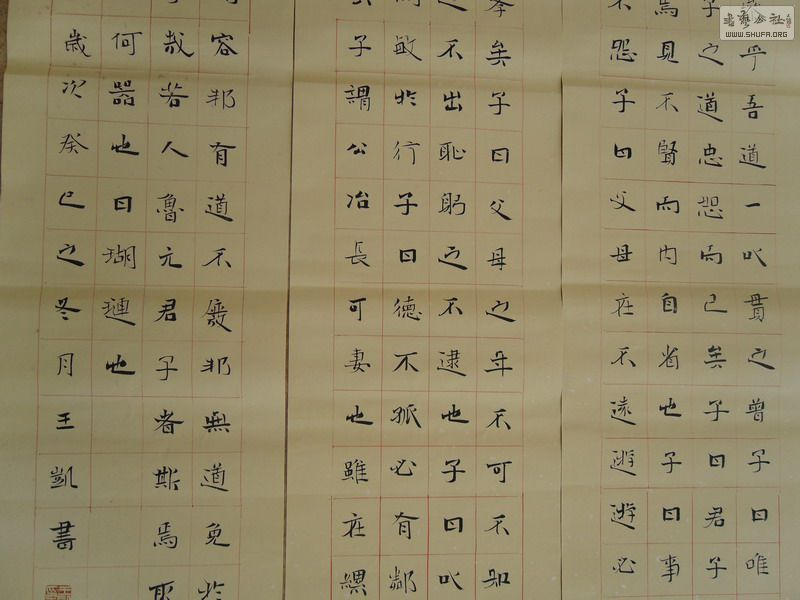 乎吾道一以貫之曾子曰唯
子之道忠恕而已矣子曰君子
焉見不賢而內自省也子曰事
不怨子曰父母在不遠遊遊必
孝矣子曰父母之年不可不知
之不出恥躬之不逮也子曰以
敏於行子曰德不孤必有鄰
子謂公冶長可妻也雖在縲
容邦有道不廢邦無道免於
哉若人魯无君子者斯焉取
何器也曰瑚璉也
歲次癸巳之冬月王凱書
WWW.SHUFA.ORG